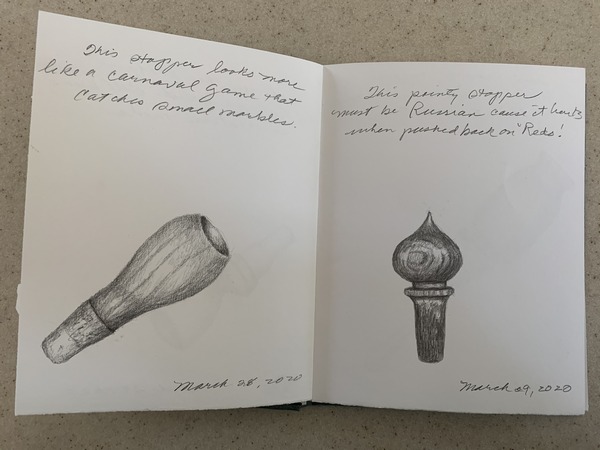 This stopper looks more
like a carnaval game that
catches small marbles.
March 28, 2020
This pointy stopper
must be Russian cause it hurts
when pushed back on "Reds!
March 29, 2020